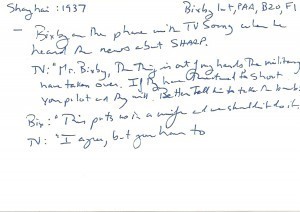 Shanghai: 1937 Bixby Int, PAA, B20, F1
– Bixby on the phone with TV Soong when he
heard the news about SHARP.
TV: "Mr. Bixby, the thing is out of my hands. The military
have taken over. If they have threatened to shoot
your pilot they will. Better tell him to take the
Bix: "This puts us in a and we shouldn't do it,
TV: "I agree, but you have to